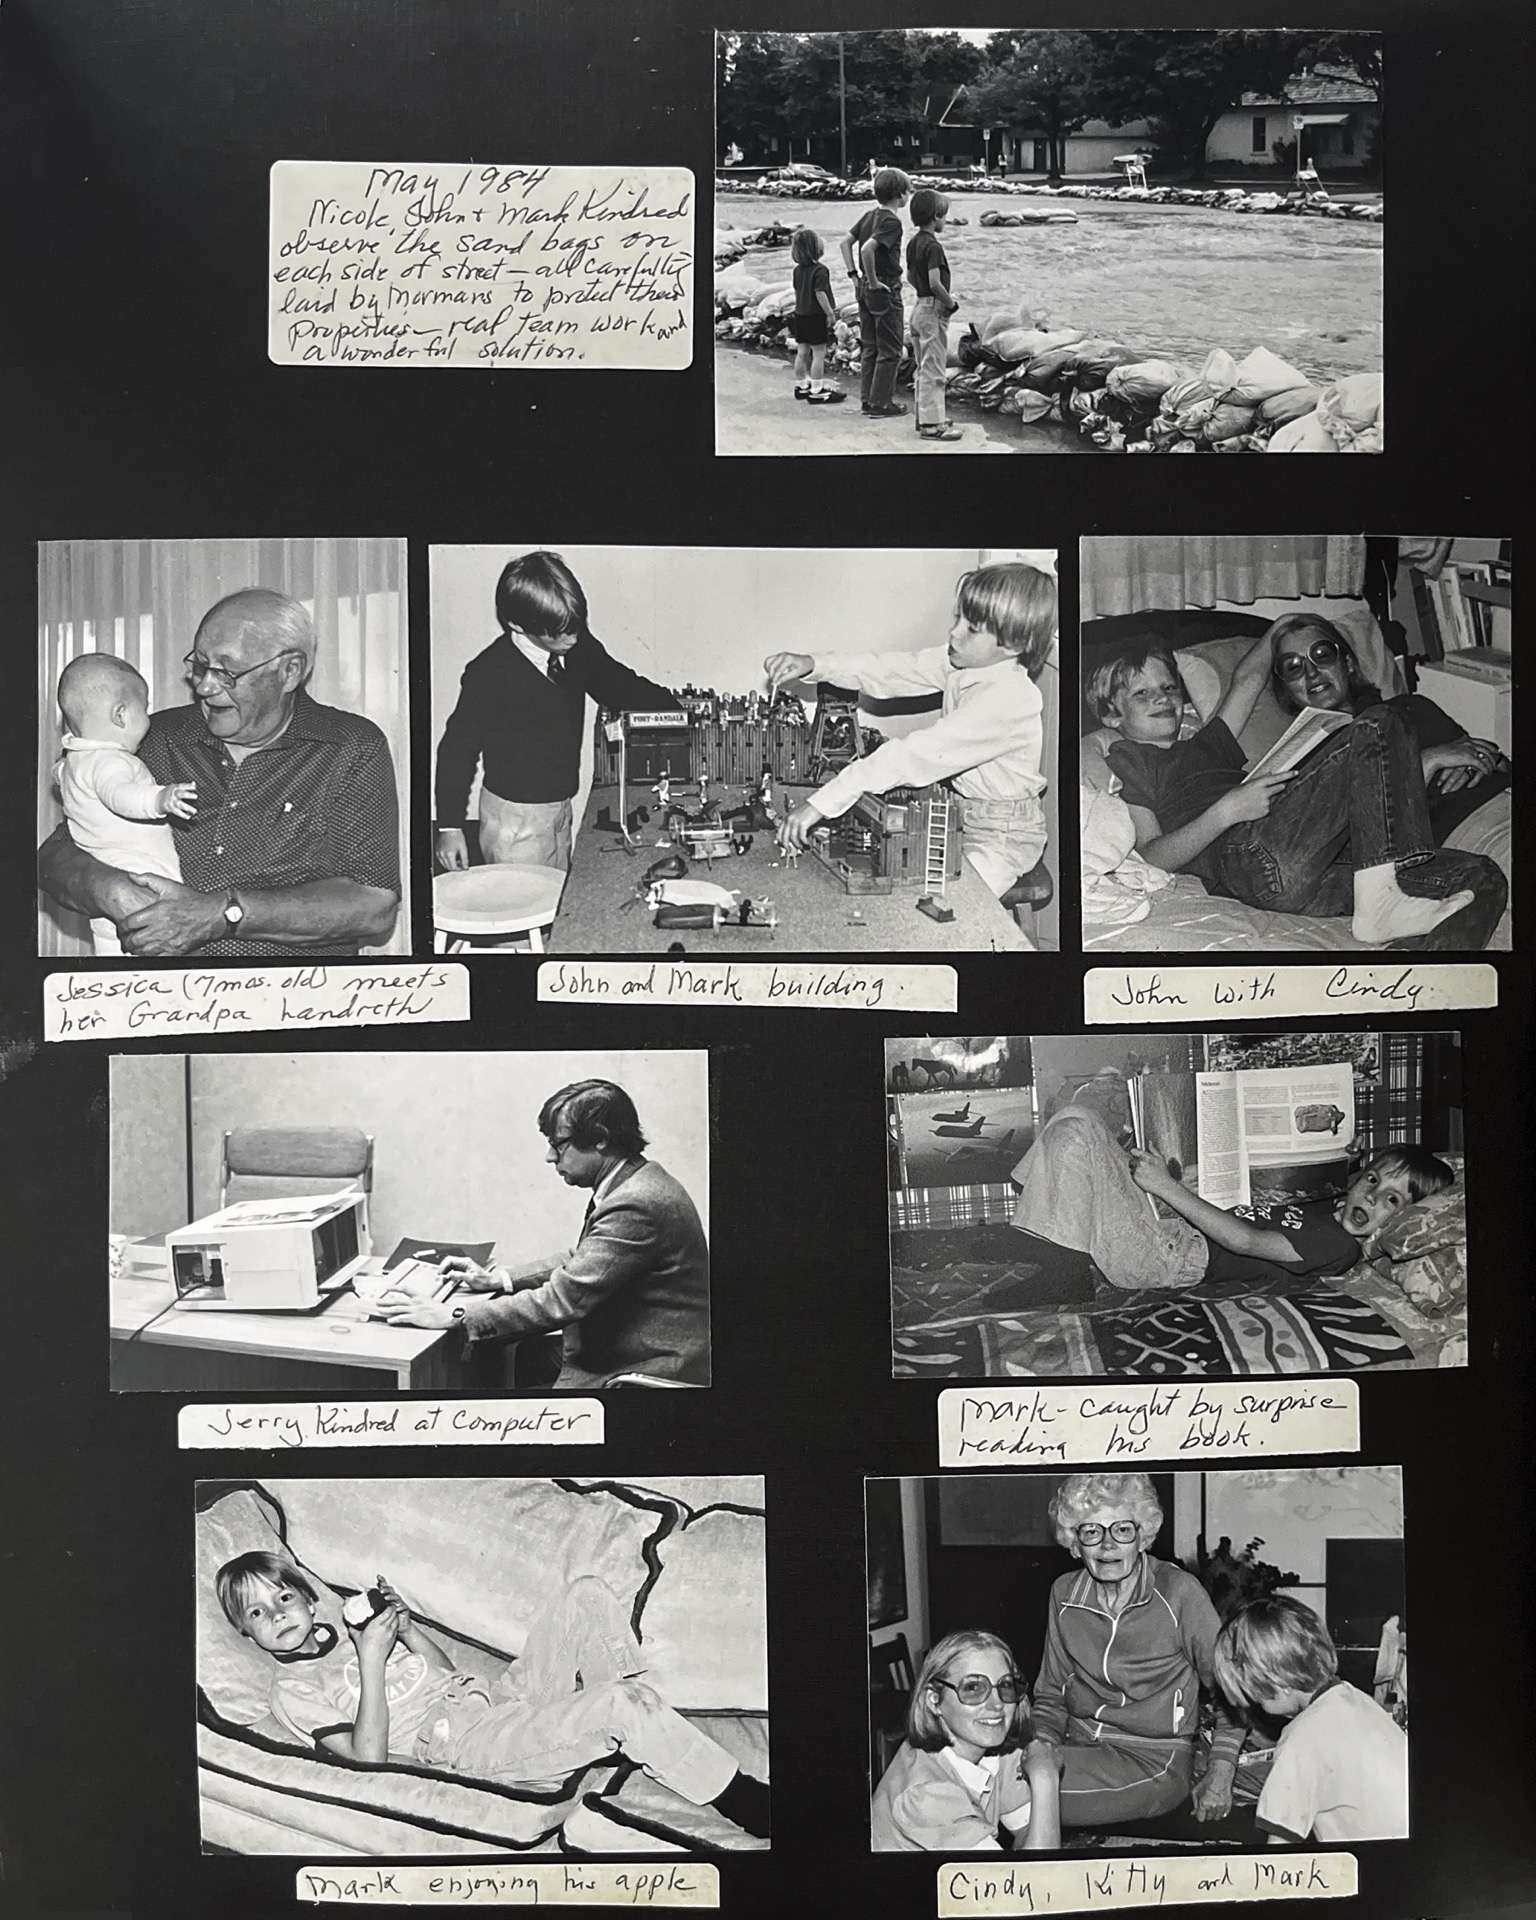 May 1984
Nicole, John + Mark Kindred
observe the sand bags on
each side of street — all carefully
laid by Mormans to protect their
properties — real team work and
a wonderful solution.
FORT-RANDALL
Jessica (7 mos. old) meets
her Grandpa Landreth
John and Mark building.
John with Cindy.
Jerry Kindred at Computer
Mark - caught by surprise
reading his book.
Mark enjoying his apple
Cindy, Kitty and Mark